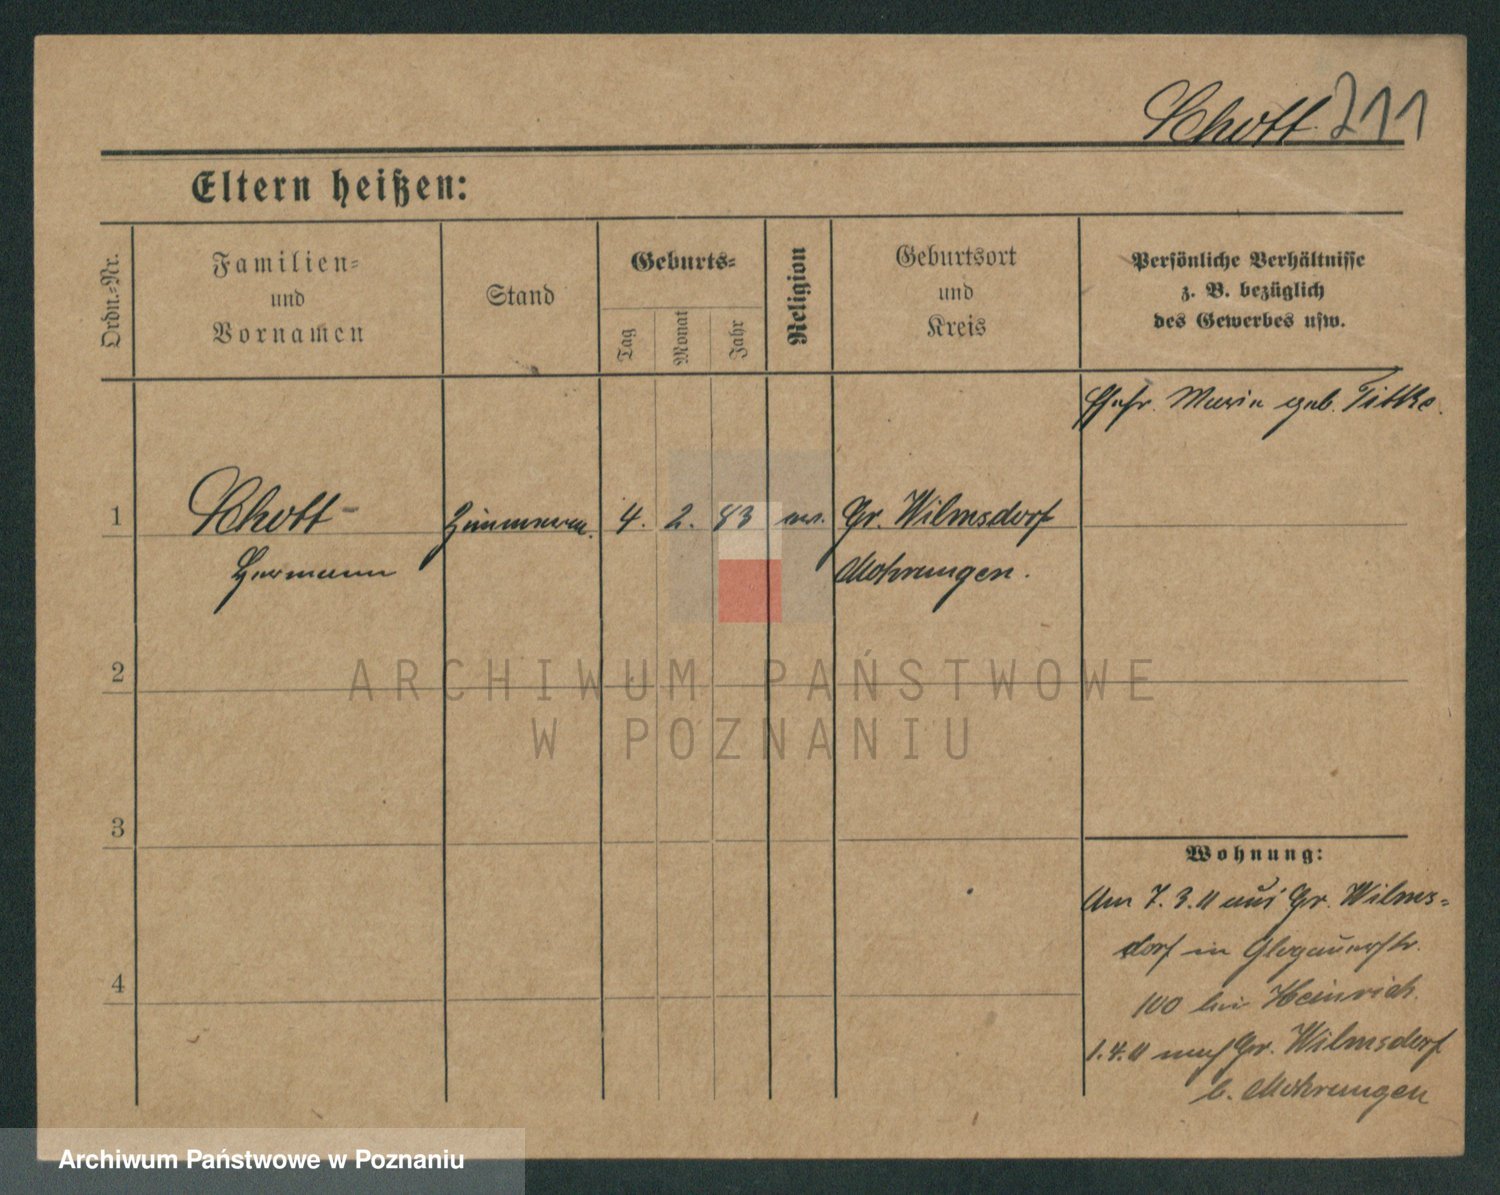 Schott 211
Eltern heißen:
Ordn.-Nr.
Familien-
und
Vornamen
Stand
Geburts-
Tag
Monat
Jahr
Religion
Geburtsort
und
Kreis
Persönliche Verhältnisse
z. B. bezüglich
des Gewerbes usw.
Ehefr. Marie geb. Tittke.
1 Schott Zimmerm. 4. 2. 83 ev. Gr. Wilmsdorf
Hermann Mohrungen.
2
ARCHIWUM PAŃSTWOWE
W POZNANIU
3
Wohnung:
Am 7.3.11 aus Gr. Wilms-
dorf in Glogauerstr.
100 bei Heinrich.
4
1.4.11 nach Gr. Wilmsdorf
b. Mohrungen
Archiwum Państwowe w Poznaniu